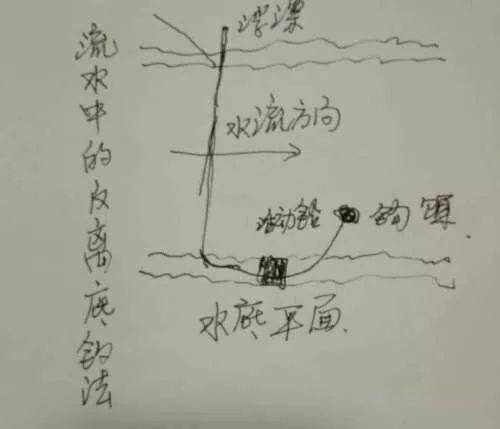 流水中的反离底钓法
浮漂
水流方向
活动铅
钩饵
水底平面